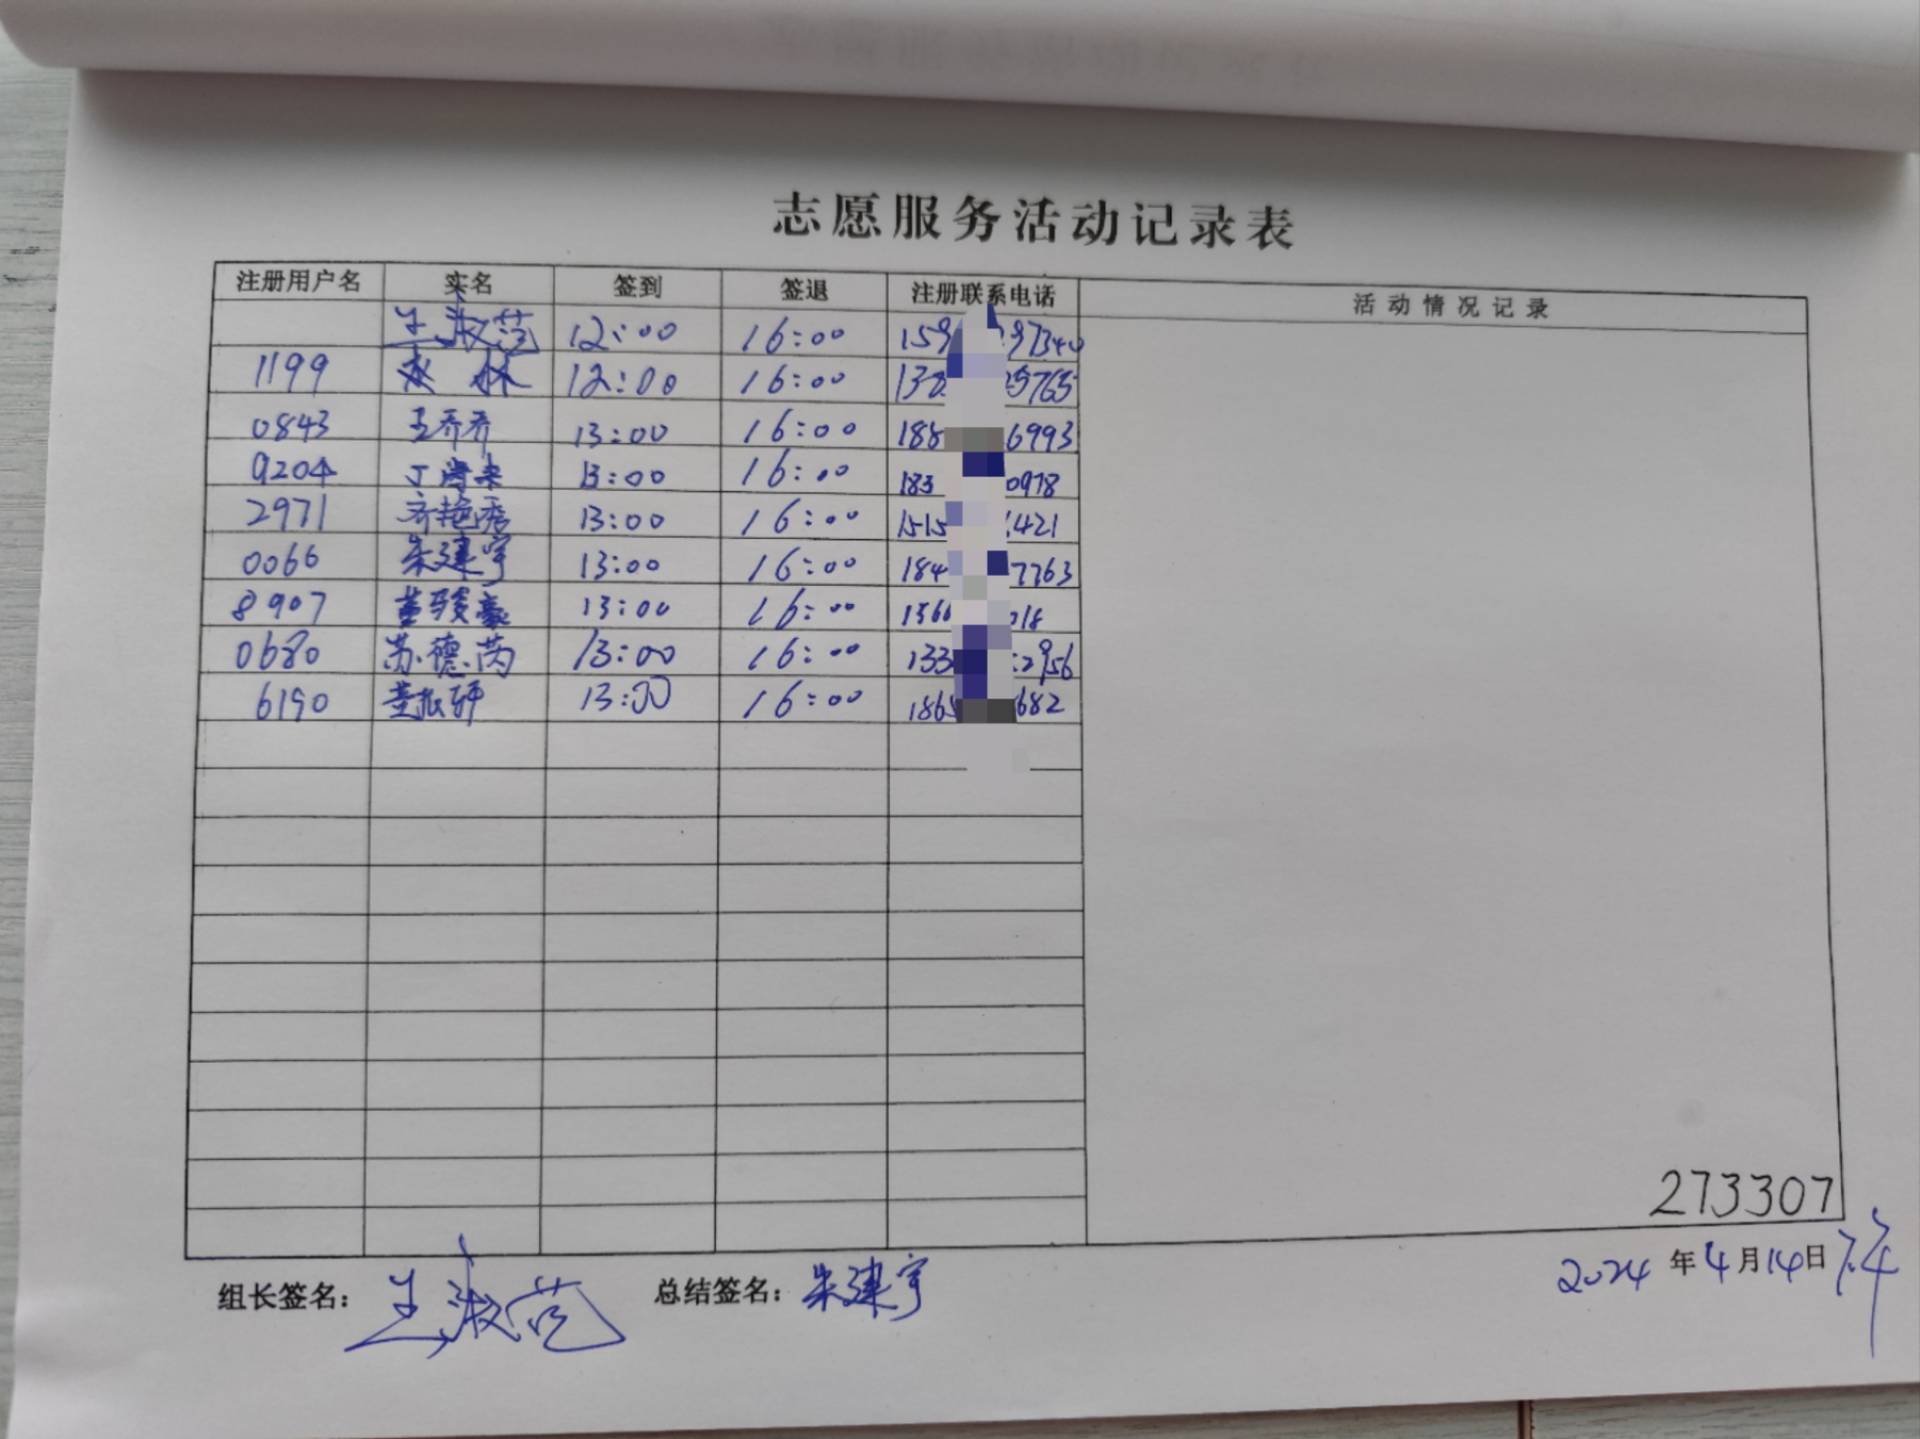 志愿服务活动记录表
注册用户名 实名 签到 签退 注册联系电话 活动情况记录
王淑范 12:00 16:00 159 97340
1199 林 12:00 16:00 13 5765
0843 王乔乔 13:00 16:00 188 6993
9204 丁 13:00 16:00 183 0978
2971 齐艳秀 13:00 16:00 1515 421
0066 朱建宇 13:00 16:00 184 7763
8907 董骏豪 13:00 16:00 136 018
0680 苏德芮 13:00 16:00 133 2956
6190 董振轩 13:00 16:00 186 682
273307
组长签名: 王淑范 总结签名: 朱建宇 2024年4月14日